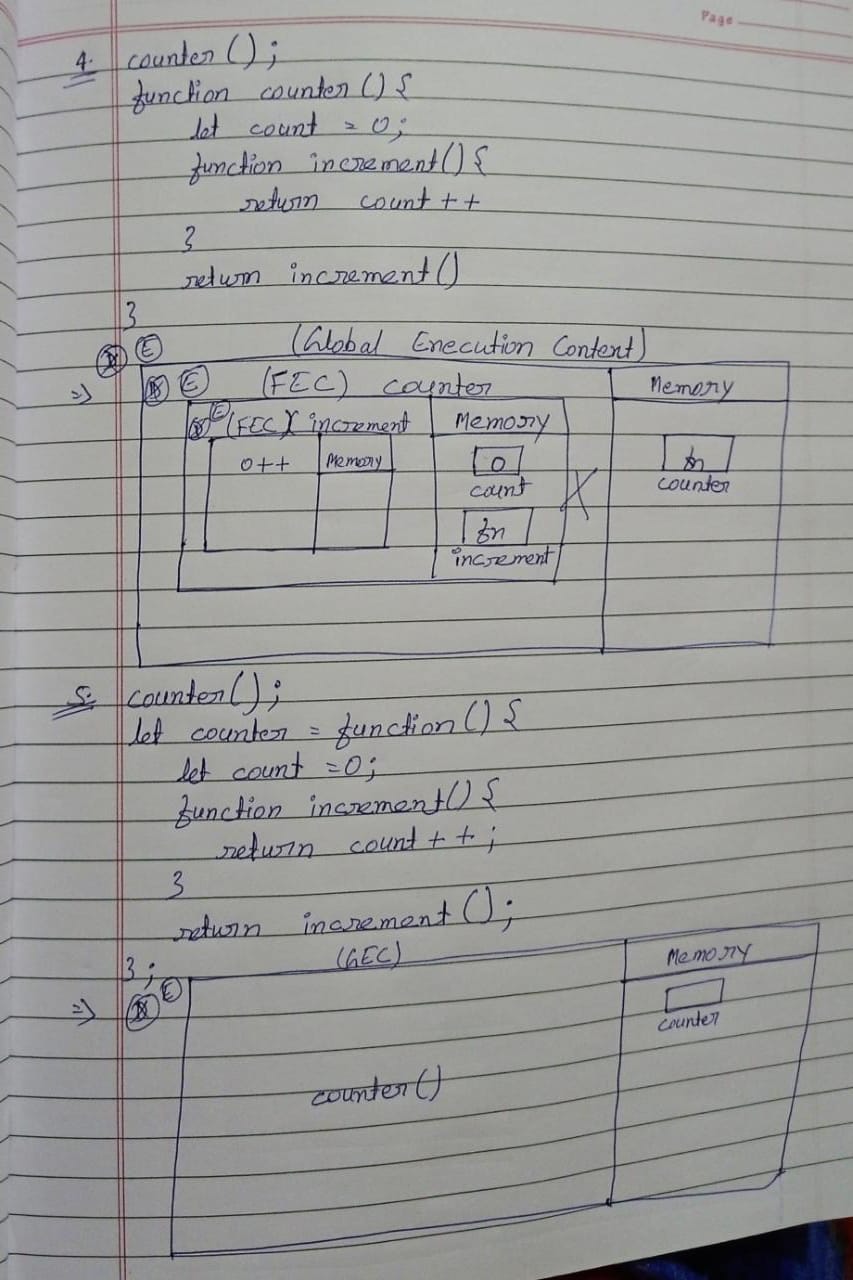 Page
4. counter();
function counter() {
let count = 0;
function increment() {
return count++
}
return increment()
}
D E (Global Execution Context)
=> D E (FEC) counter Memory
D E (FEC) increment Memory
0++ Memory 0 fn
count counter
fn
increment
5. counter();
let counter = function() {
let count = 0;
function increment() {
return count++;
}
return increment();
};
(GEC) Memory
=> D E
counter
counter()